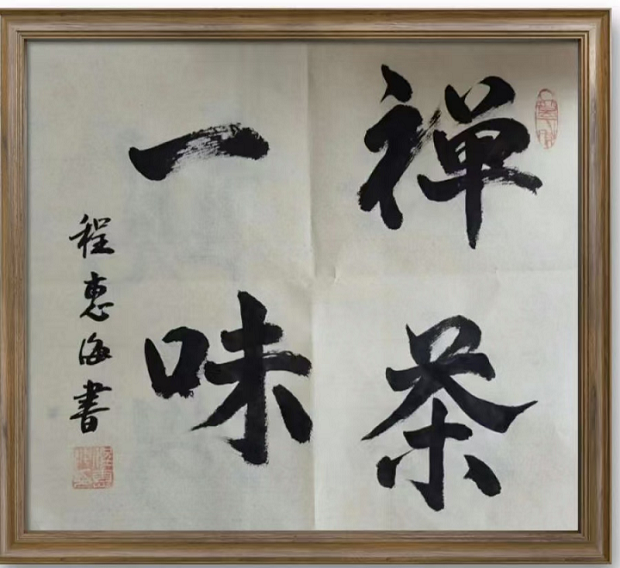 禅茶
一味
程惠海書